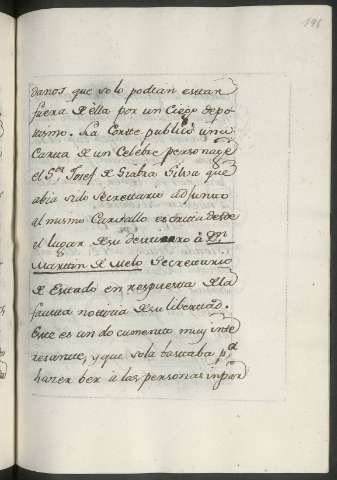 196
danos que solo podian estar
fuera de ella por un Ciego depo
tismo. La Corte publicò una
Carta de un Celebre personage
el S.or Josef de Siabra Silva que
abia sido Secretario adjunto
al mismo Carvallo escrita desde
el lugar de su destierro à D.n
Martin de Melo Secretario
de Estado en respuesta de la
fausta noticia de su libertad.
Este es un documento muy inte
resante, y que sola bastaba p.a
hazer ber à las personas inpar